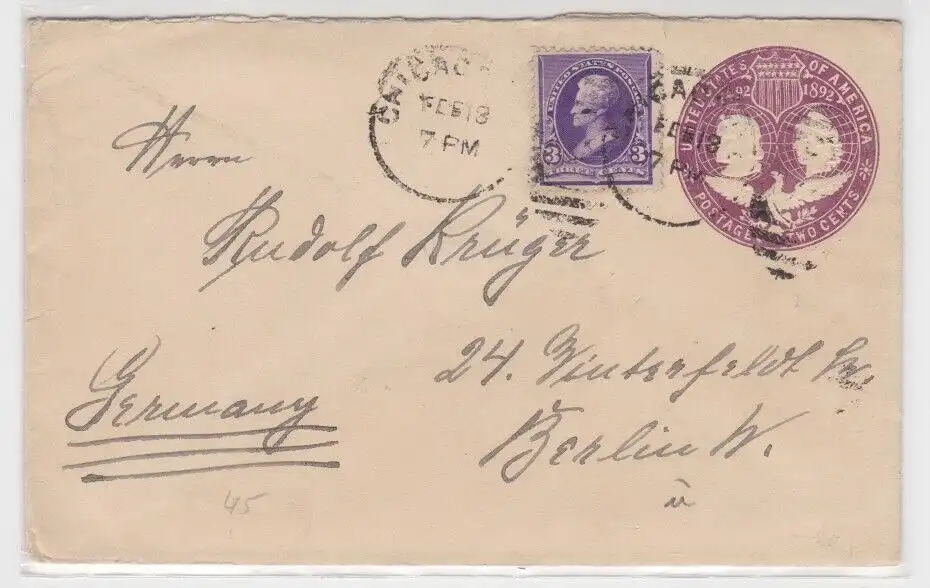 CHICAGO
FEB 18
7 PM
UNITED STATES POSTAGE
3 3
THREE CENTS
CAGO
FEB 18
7 PM
UNITED STATES OF AMERICA
1492 1892
POSTAGE TWO CENTS
Herrn
Rudolf Krüger
24. Winterfeldt Str.
Germany
Berlin W.
45